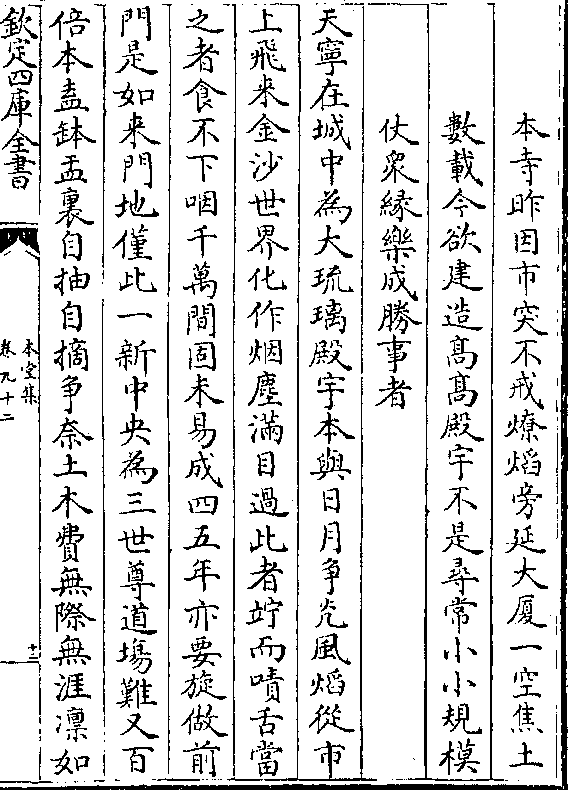 本寺昨因市突不戒燎熖旁延大厦一空焦土
數載今欲建造髙髙殿宇不是尋常小小規模
仗衆緣樂成勝事者
天寧在城中為大琉璃殿宇本與日月争光風熖從市
上飛来金沙世界化作烟塵滿目過此者竚而嘖舌當
之者食不下咽千萬間固未易成四五年亦要旋做前
門是如来門地僅此一新中央為三世尊道塲難又百
倍本盖鉢盂裏自抽自摘争奈土木費無際無涯凛如
欽定四庫全書
本堂集
卷九十二
十三